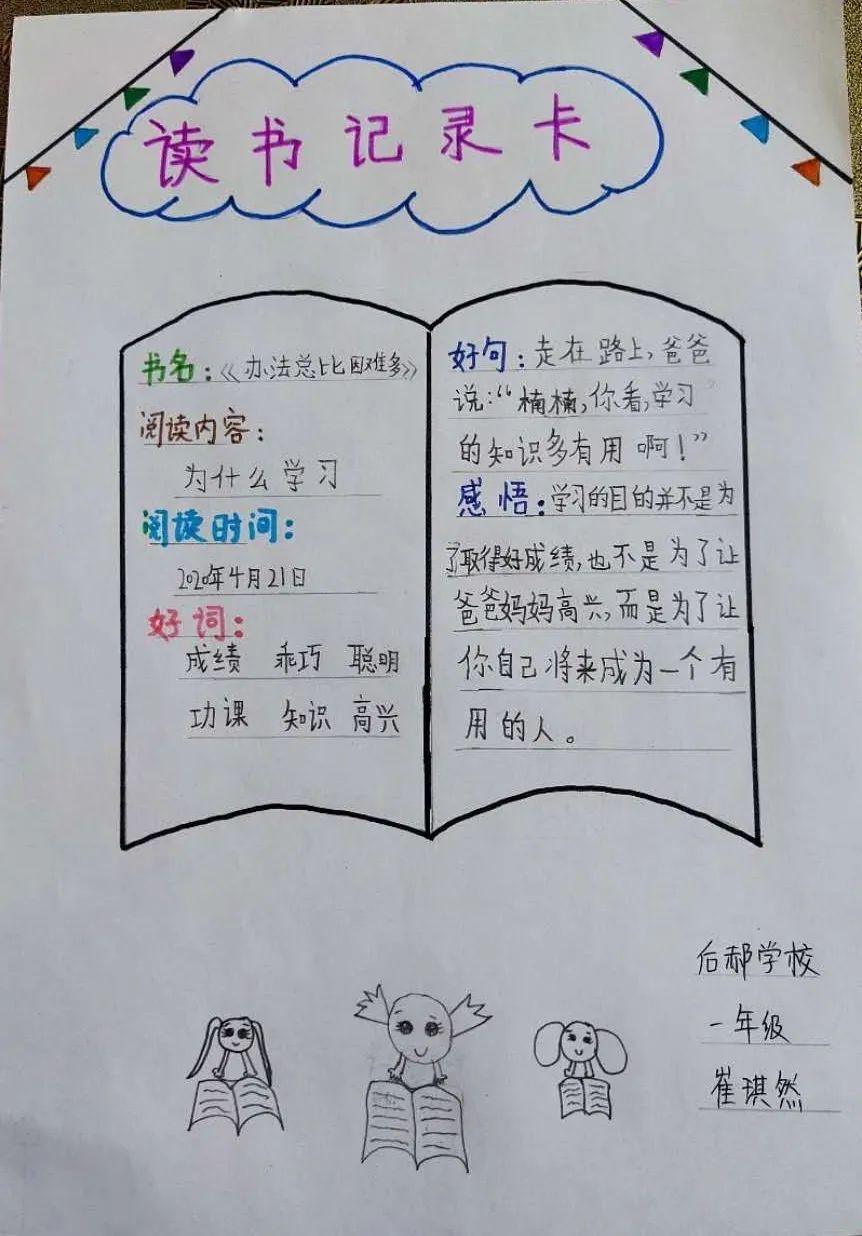 读书记录卡
书名：《办法总比困难多》
阅读内容：
为什么学习
阅读时间：
2020年4月21日
好词：
成绩 乖巧 聪明
功课 知识 高兴
好句：走在路上，爸爸
说：“楠楠，你看，学习
的知识多有用啊！”
感悟：学习的目的并不是为
了取得好成绩，也不是为了让
爸爸妈妈高兴，而是为了让
你自己将来成为一个有
用的人。
后郝学校
一年级
崔琪然